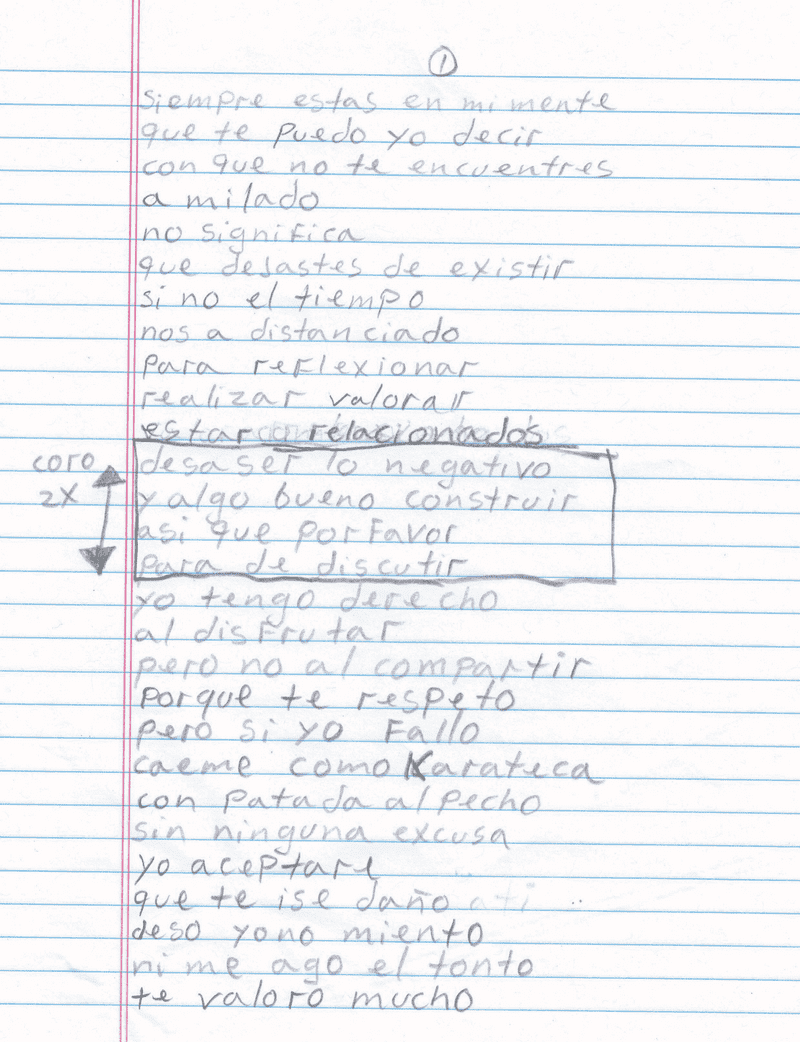 1
siempre estas en mi mente
que te puedo yo decir
con que no te encuentres
a milado
no significa
que dejastes de existir
si no el tiempo
nos a distanciado
para reflexionar
realizar valorar
estar relacionados
coro
2X
desaser lo negativo
y algo bueno construir
asi que porfavor
para de discutir
yo tengo derecho
al disfrutar
pero no al compartir
porque te respeto
pero si yo fallo
caeme como Karateca
con patada al pecho
sin ninguna excusa
yo aceptare
que te ise daño ati
deso yo no miento
ni me ago el tonto
te valoro mucho